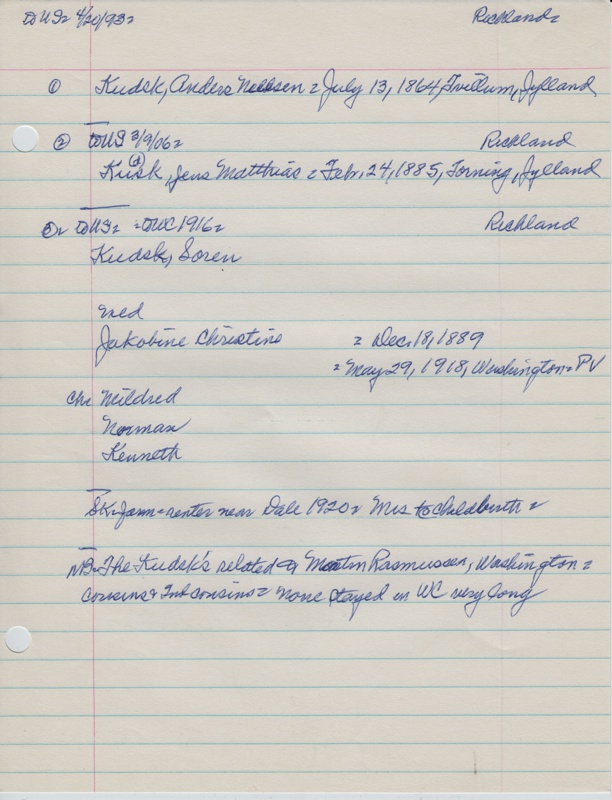 to US = 4/20/93 = Richland =
① Kudsk, Anders Nielsen = July 13, 1864, Tvillum, Jylland
② to US 3/9/06 = Richland
Kusk, Jens Matthias = Feb. 24, 1885, Torning, Jylland
(d)
to US = = to WC 1916 = Richland
Kudsk, Soren
med
Jakobine Christine = Dec. 18, 1889
= May 29, 1918, Washington = PV
Ch: Mildred
Norman
Kenneth
SK = farm = renter near Dale 1920 = Mrs to Childbirth =
NB = The Kudsk's related to Martin Rasmussen, Washington =
Cousins & cousins = None stayed in WC very long